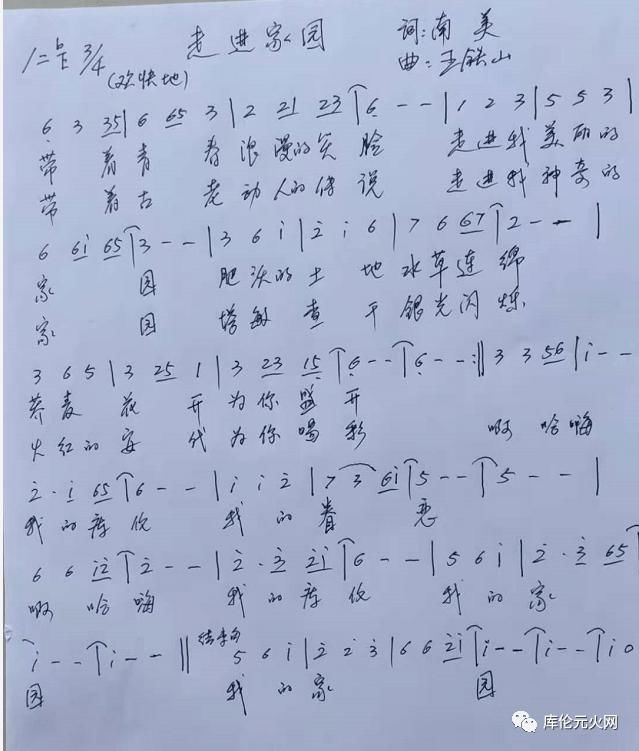 走进家园
词:南美
1=♭E 3/4
(欢快地)
曲:王铁山
6 3 35 | 6 65 3 | 2 21 23 | 6 - - | 1 2 3 | 5 5 3 |
带着青春浪漫的笑脸 走进我美丽的
带着古老动人的传说 走进我神奇的
6 6i 65 | 3 - - | 3 6 i | 2 i 6 | 7 6 67 | 2 - - |
家园 肥沃的土地水草连绵
家园 塔敏查干银光闪烁
3 6 5 | 3 25 1 | 3 23 15 | 6 - - | 6 - - :‖ 3 3 56 | i - -
荞麦花开为你盛开
火红的安代为你喝彩 啊哈嗨
2 · i 65 | 6 - - | i i 2 | 7 3 6i | 5 - - | 5 - - |
我的库伦 我的眷恋
6 6 i2 | 2 - - | 2 · 3 2i | 6 - - | 5 6 i | 2 · 3 65
啊哈嗨 我的库伦 我的家
i - - | i - - ‖ 结束句 5 6 i | 2 2 3 | 6 6 2i | i - - | i - - | i 0
园 我的家园
库伦元火网